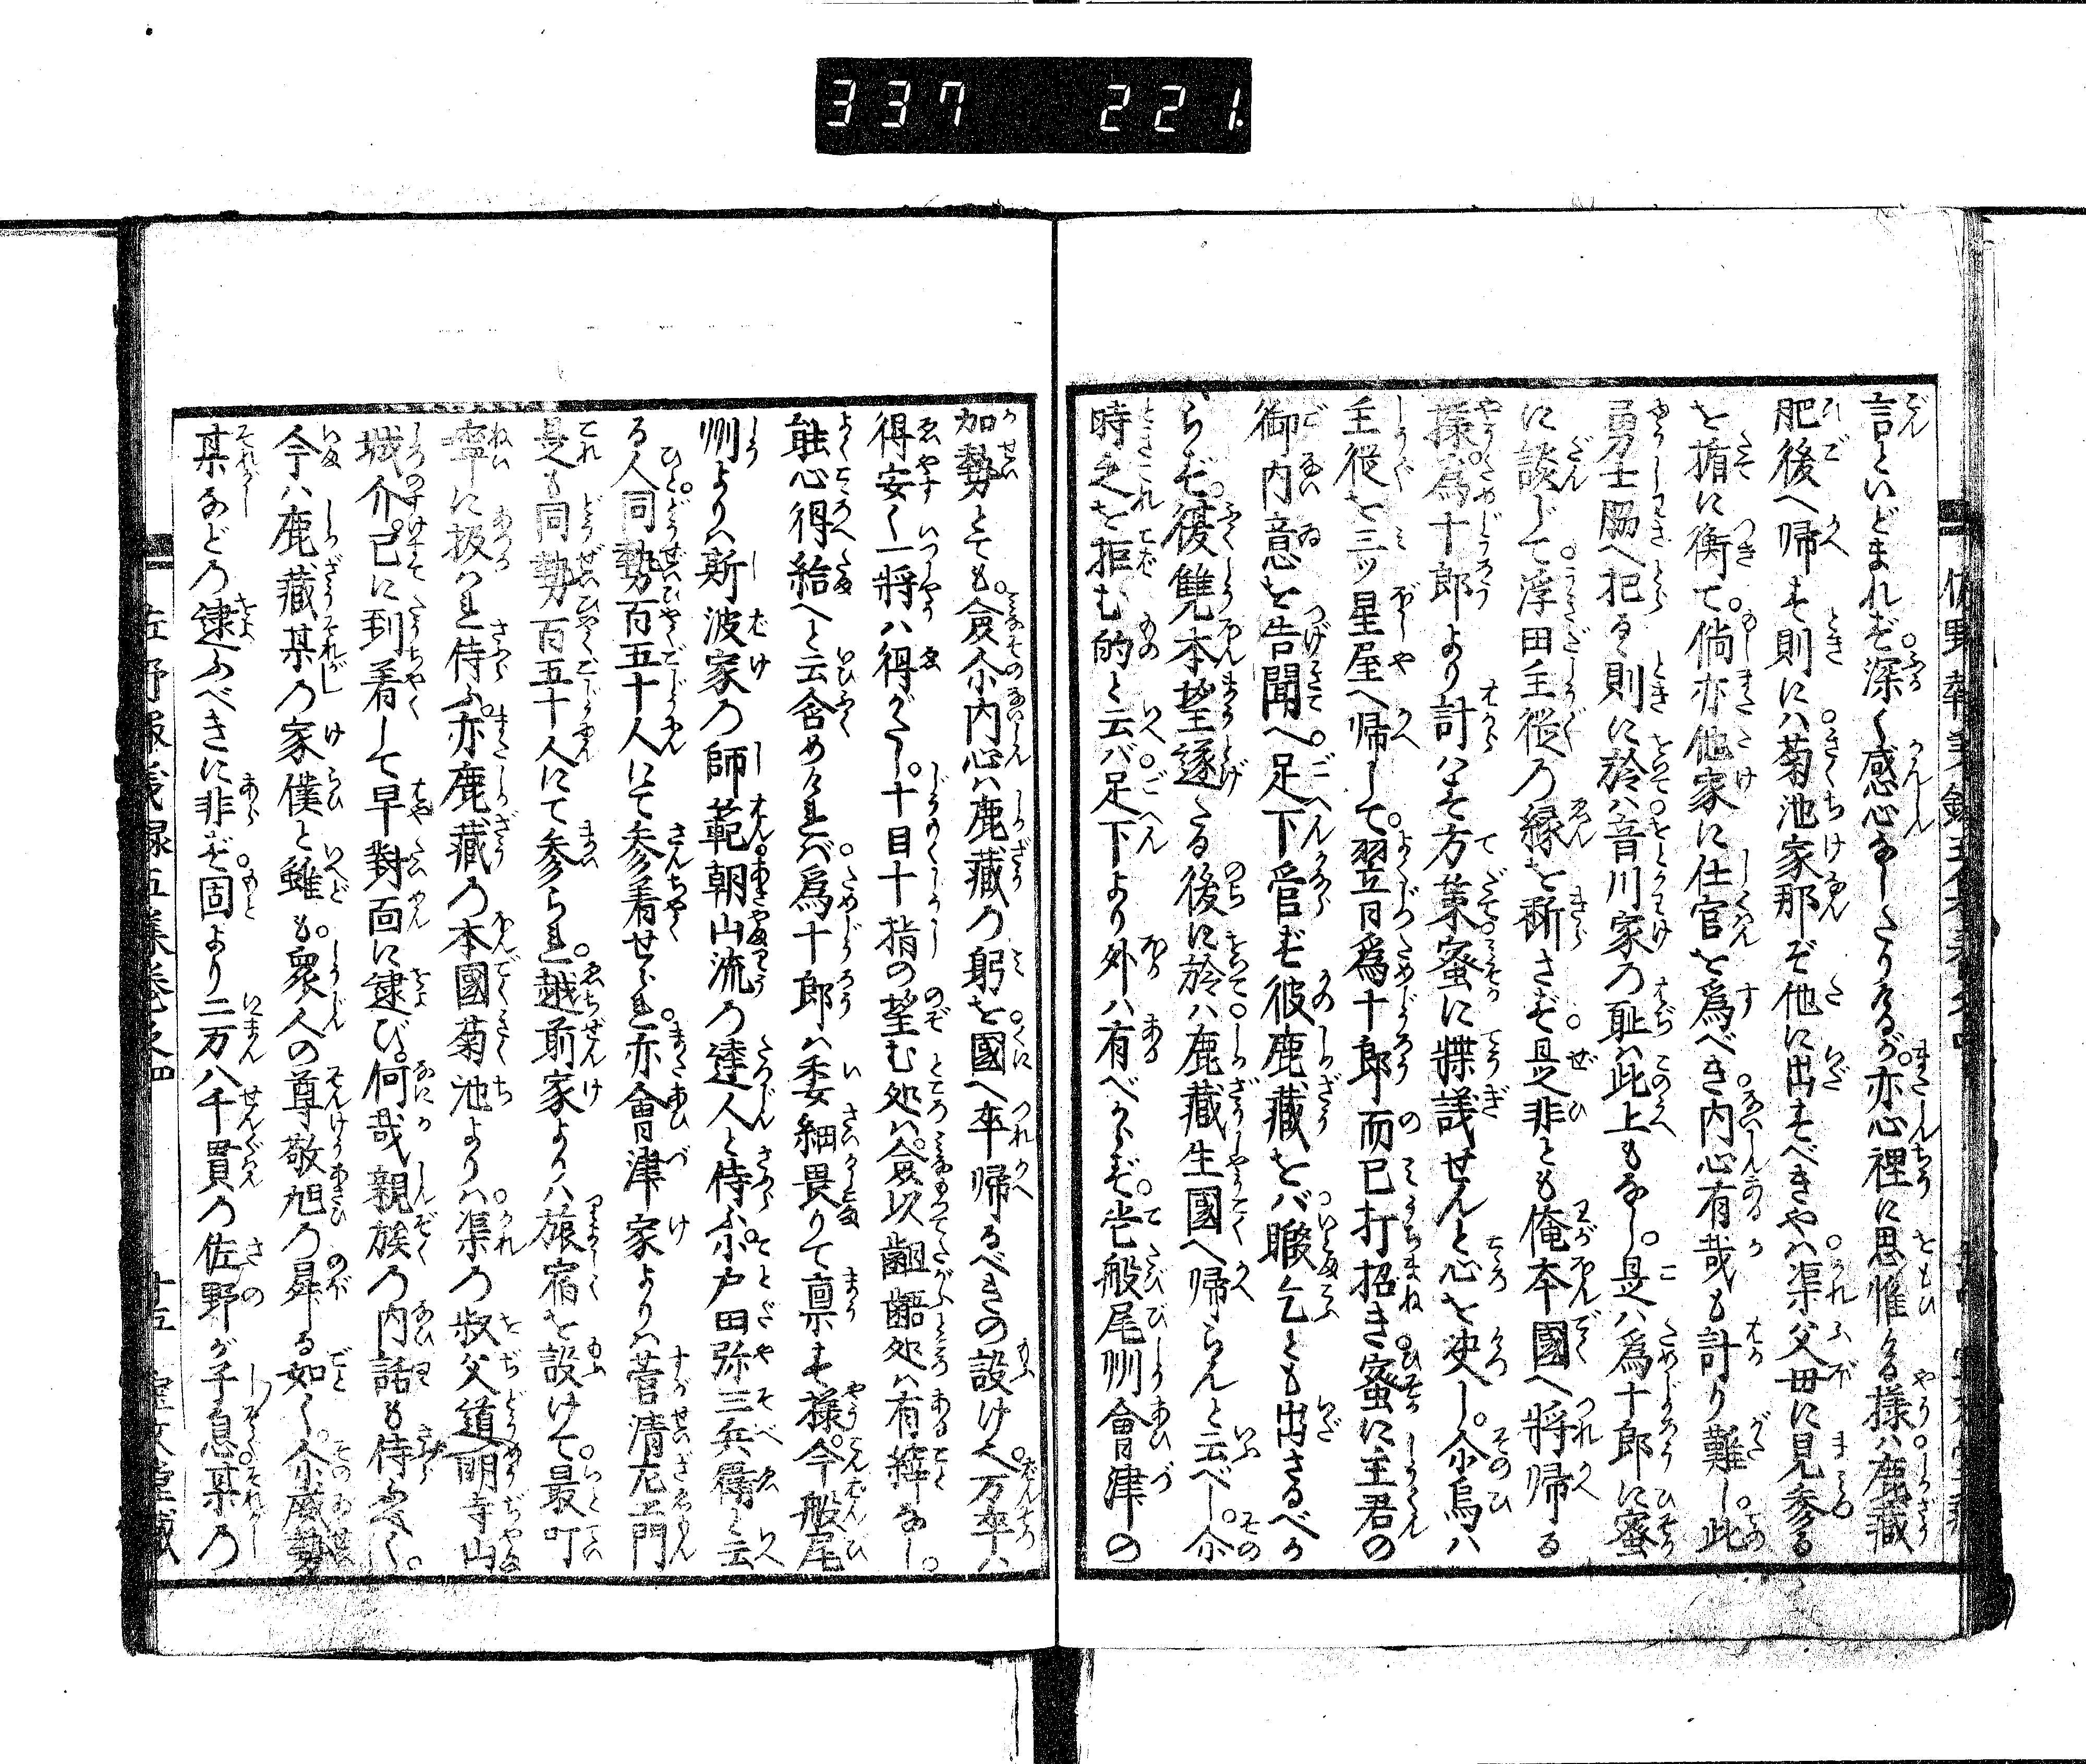 337 221.
言といどまれず深く感心なしたりけるが亦心裡に思惟ける様ハ鹿藏
肥後へ帰りき則にハ菊池家那ぞ他に出すべきやハ渠父毋に見参る
を楯に衝て倘亦他家に仕官を爲べき内心有哉も計り難し此
勇士脇へ把るゝ則に於ハ音川家の耻ハ此上もなし是ハ爲十郎に蜜
に談じて浮田主從の縁を斷さず是非とも俺本國へ將帰る
様爲十郎より計ハす方策蜜に牒議せんと心を決し尒烏ハ
主從を三ッ星屋へ帰して翌日爲十郎而已打招き蜜に主君の
御内意を告聞へ足下管ず彼鹿藏をバ暇乞とも出さるべか
らず復讐本望遂たる後に於ハ鹿藏生國へ帰らんと云べし尒
時之を拒む的と云バ足下より外ハ有べからず尒般尾州會津の
加勢とても僉尒内心ハ鹿藏の躬を國へ卒帰るべきの設けく万卒ハ
得安く一將ハ得がたし十目十指の望む処ハ僉以齟齬処ハ有縡なし
能心得給へと云含めけれバ爲十郎ハ委細畏りて稟す様今般尾
州よりハ斯波家の師範朝山流の達人と侍ふ尒戸田弥三兵衞と云
る人同勢百五十人にて参着せられ亦會津家よりハ菅清左エ門
是も同勢百五十人にて参られ越前家よりハ旅宿を設けて最叮
寧に扱ハれ侍ふ亦鹿藏の本國菊池よりハ渠の叔父道明寺山
城介已に到着して早對面に逮び何哉親族の内話も侍ふべく
今ハ鹿藏某の家僕と雖も衆人の尊敬旭の昇る如く尒威勢
某などの逮ふべきに非ず固より二万八千貫の佐野が子息某の
佐野報義録五集卷之四 十五 寳文堂藏